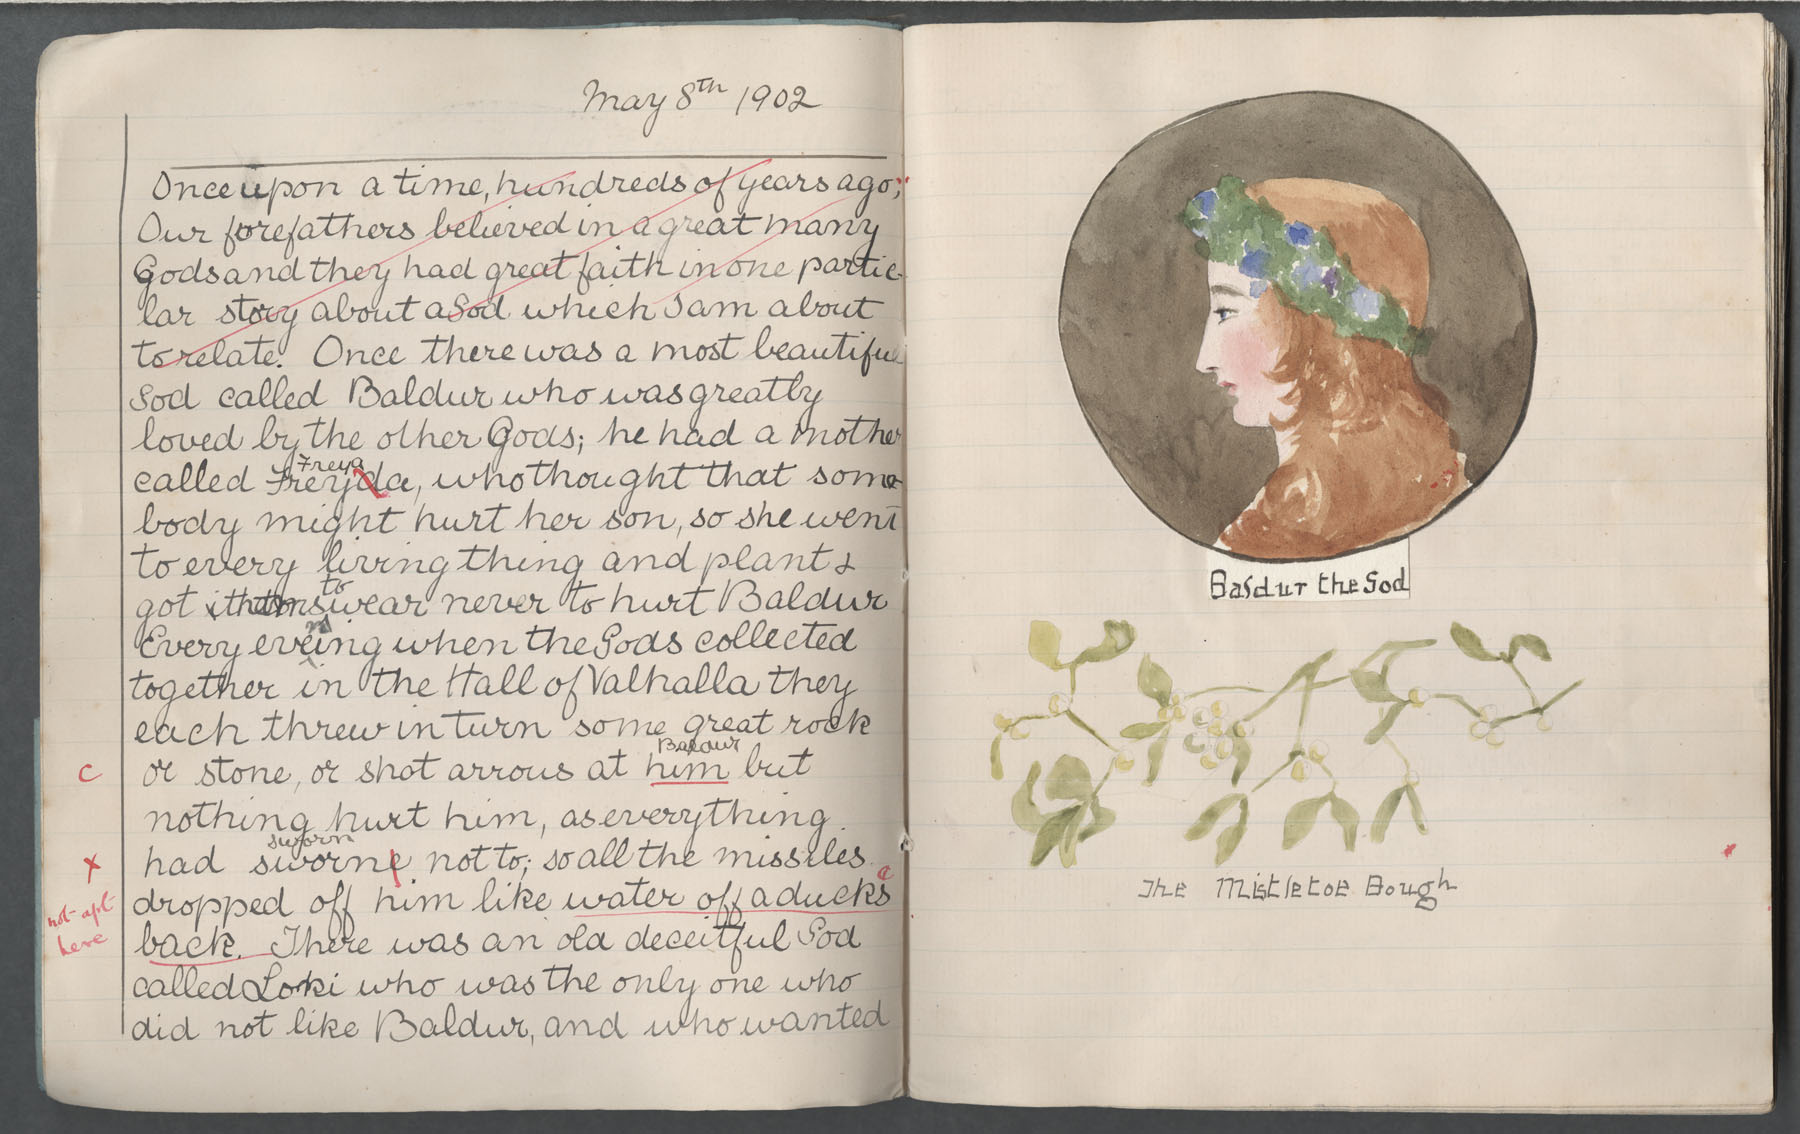 May 8th 1902
Once upon a time, hundreds of years ago;
Our forefathers believed in a great many
Gods and they had great faith in one partic-
lar story about a God which I am about
to relate. Once there was a most beautiful
God called Baldur who was greatly
loved by the other Gods; he had a mother
Freya
called Freyda, who thought that some-
body might hurt her son, so she went
to every living thing and plant &
to
got them swear never to hurt Baldur
n
Every eveing when the Gods collected
together in the Hall of Valhalla they
each threw in turn some great rock
Baldur
c or stone, or shot arrous at him but
nothing hurt him, as everything
sworn
x had sworne not to; so all the missiles
dropped off him like water off a ducks
not apt
here
back. There was an old deceitful God
called Loki who was the only one who
did not like Baldur, and who wanted
Baldur the God
The Mistletoe Bough